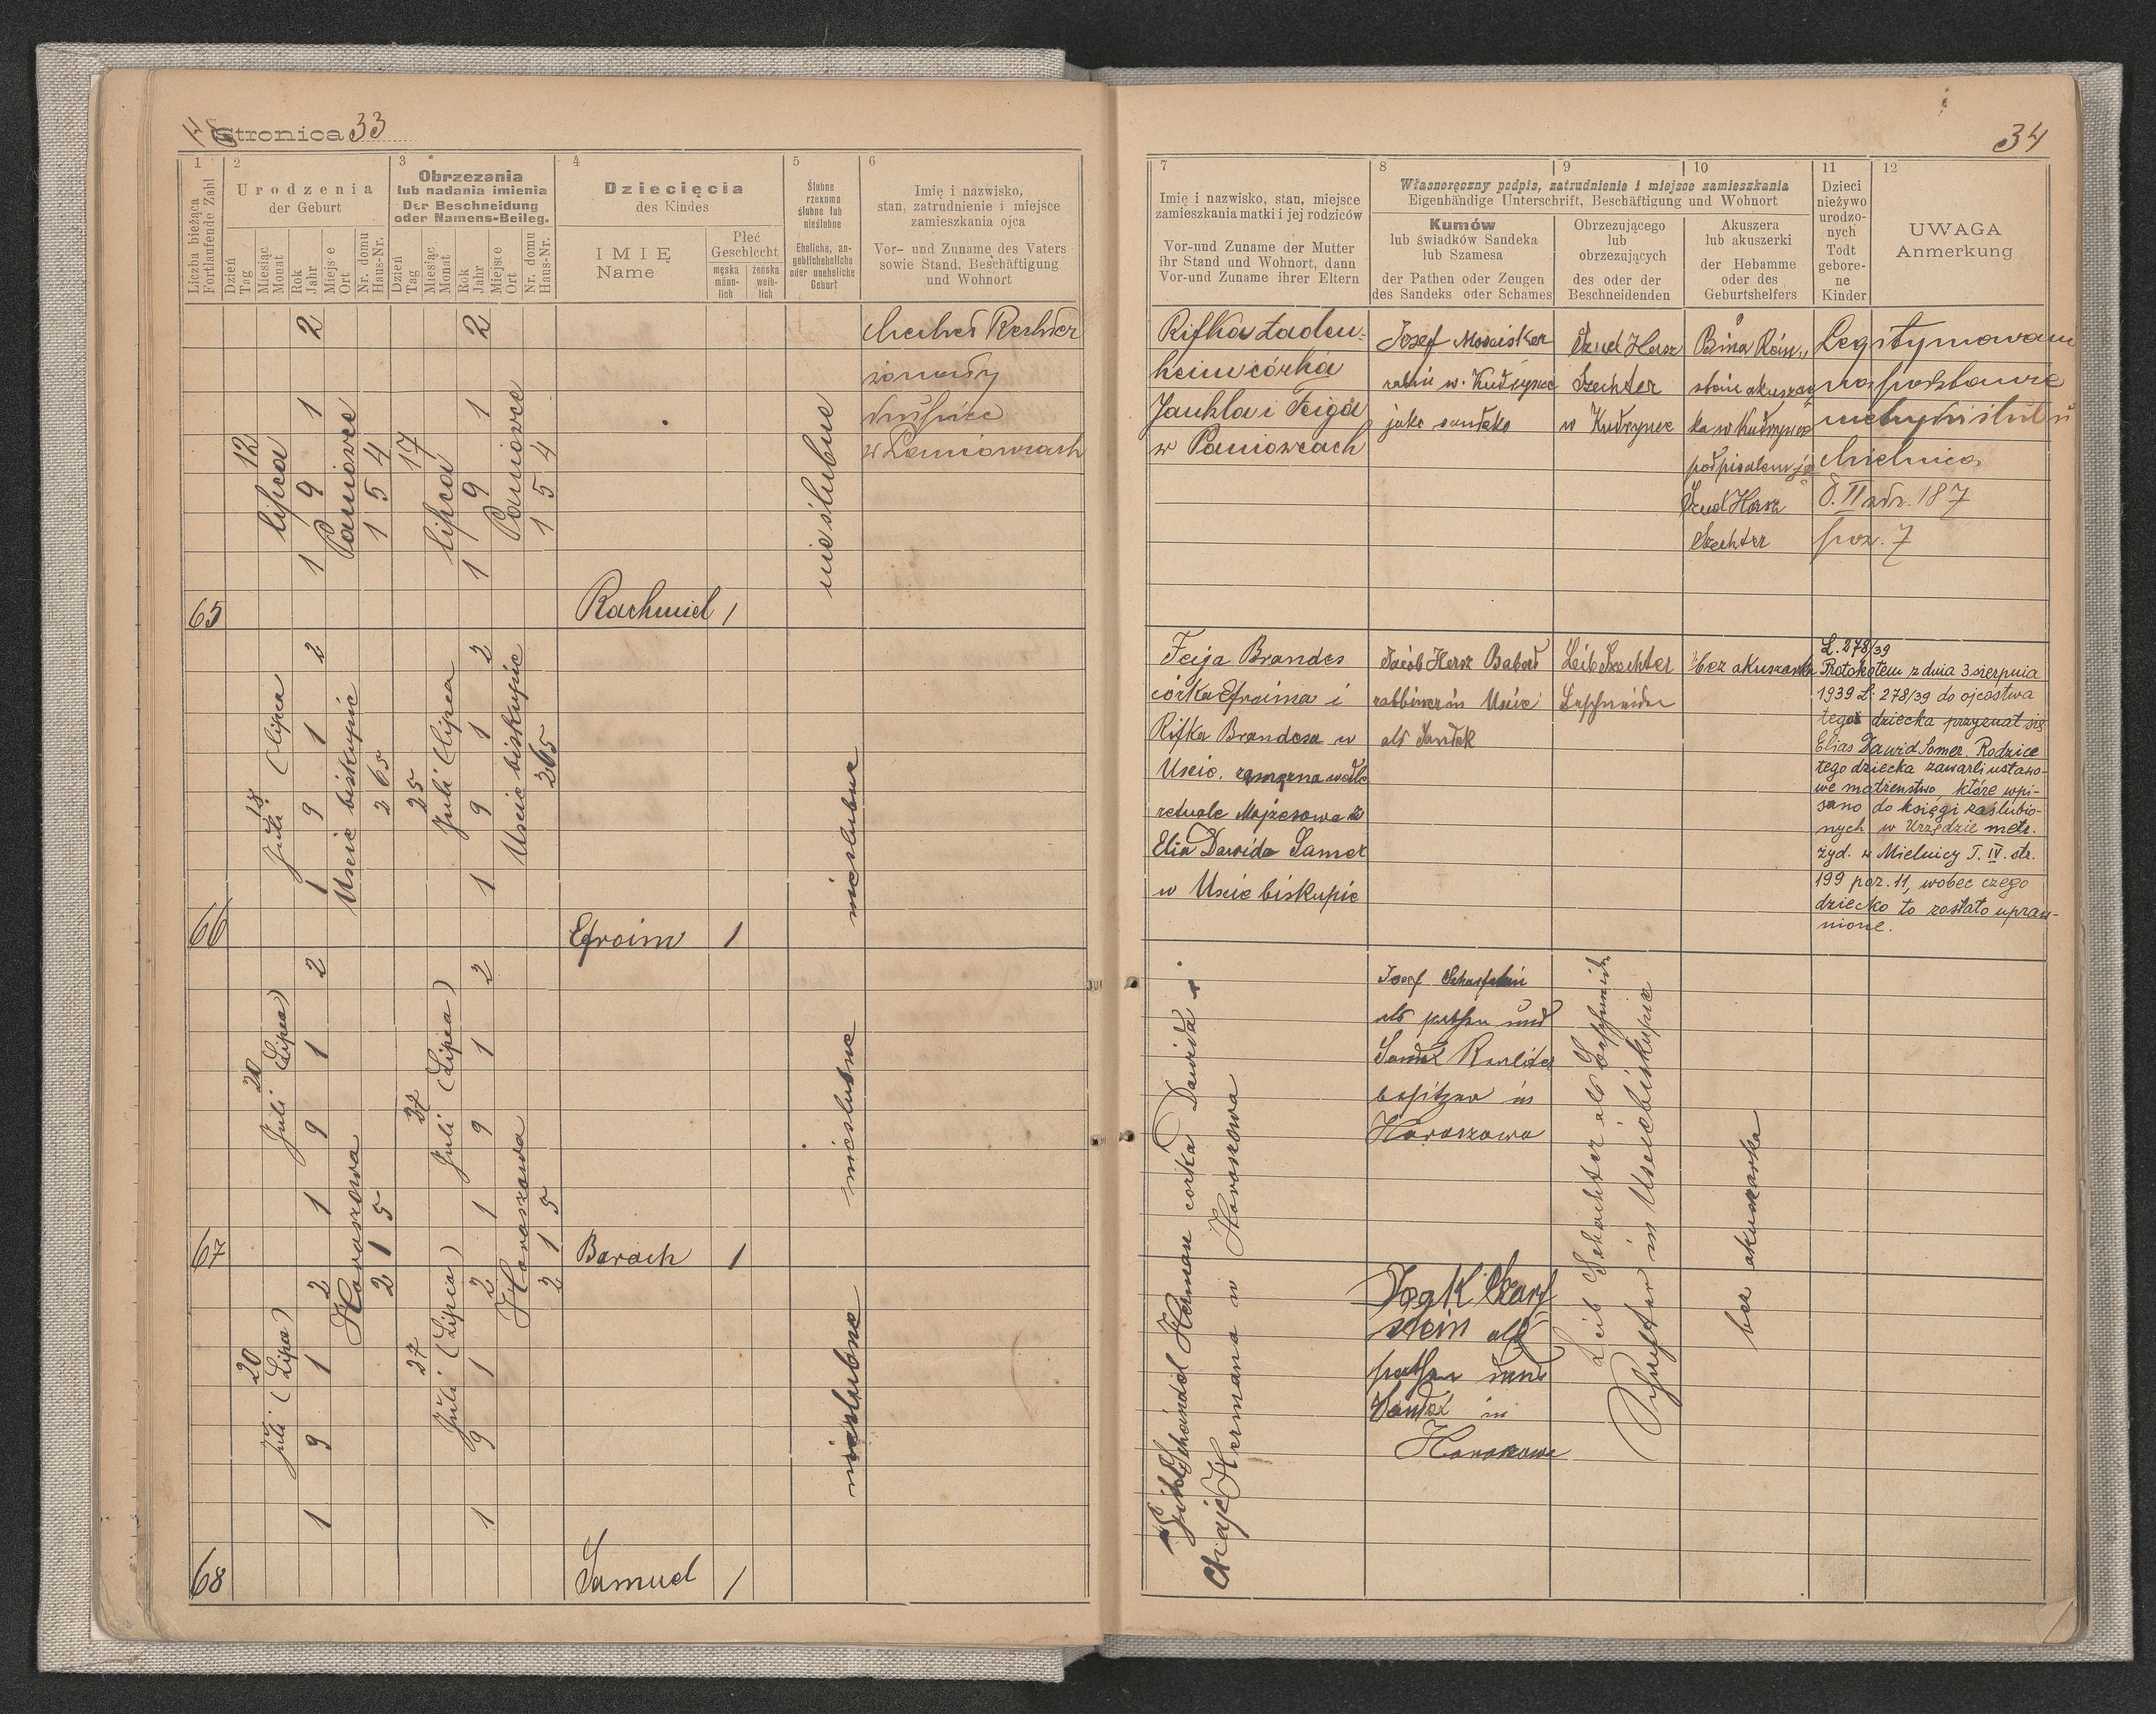 Stronica 33
1
2
3
4
5
6
Liczba bieżąca
Fortlaufende Zahl
Urodzenia
der Geburt
Dzień
Tag
Miesiąc
Monat
Rok
Jahr
Miejsce
Ort
Nr. domu
Haus-Nr.
Obrzezania
lub nadania imienia
Der Beschneidung
oder Namens-Beileg.
Dzień
Tag
Miesiąc
Monat
Rok
Jahr
Miejsce
Ort
Nr. domu
Haus-Nr.
Dziecięcia
des Kindes
IMIĘ
Name
Płeć
Geschlecht
męska
männ-
lich
żeńska
weib-
lich
Ślubne
rzekomo
ślubne lub
nieślubne
Eheliche, an-
geblicheheliche
oder uneheliche
Geburt
Imię i nazwisko,
stan, zatrudnienie i miejsce
zamieszkania ojca
Vor- und Zuname des Vaters
sowie Stand, Beschäftigung
und Wohnort
65
12
lipca
1 9 1 2
Paniowce
1 5 4
17
lipca
1 9 1 2
Paniowce
1 5 4
Rachmiel 1
nieślubne
w Paniowcach
66
18
Juli (lipca
1 9 1 2
Uscie biskupie
265
25
Juli (lipca
1 9 1 2
Uscie biskupie
265
Efroim 1
nieslubne
67
20
Juli (Lipca)
1 9 1 2
Horoszowa
2 1 5
27
Juli (Lipca)
1 9 1 2
Horoszowa
2 1 5
Barach 1
nieslubne
68
20
Juli (Lipca)
1 9 1 2
27
Juli (Lipca)
1 9 1 2
Samuel 1
nieslubne
34
7
8
9
10
11
12
Imię i nazwisko, stan, miejsce
zamieszkania matki i jej rodziców
Vor-und Zuname der Mutter
ihr Stand und Wohnort, dann
Vor-und Zuname ihrer Eltern
Własnoręczny podpis, zatrudnienie i miejsce zamieszkania
Eigenhändige Unterschrift, Beschäftigung und Wohnort
Kumów
lub świadków Sandeka
lub Szamesa
der Pathen oder Zeugen
des Sandeks oder Schames
Obrzezującego
lub
obrzezujących
des oder der
Beschneidenden
Akuszera
lub akuszerki
der Hebamme
oder des
Geburtshelfers
Dzieci
nieżywo
urodzo-
nych
Todt
gebore-
ne
Kinder
UWAGA
Anmerkung
Rifka Laden-
heim córka
Jankla i Feiga
w Paniowcach
Josef Moscisker
rabin w. Kudrynce
jako sandeko
Srul Hersz
Szechter
w Kudrynce
Bina
akuszer
ka w Kudryncé
podpisałem ja
Srul Hersz
Szechter
Legitymowany
na podstawie
metryki ślubu
Mielnica
t. II str. 187
poz. 7
Feija Brandes
córka Efroima i
Rifka Brandesa w
Uscie, zamęzna wedle
retuale Mojżesowa z
Elia Dawida Samer
w Uscie biskupie
Jacób Hersz Babad
rabbiner in Uscie
als Sandek
Leib Szechter
bez akuszerka
L. 278/39
Protokołem z dnia 3 sierpnia
1939 L. 278/39 do ojcostwa
tego dziecka przyznał się
Elias Dawid Somer. Rodzice
tego dziecka zawarli ustawo-
we małżeństwo, które wpi-
sano do księgi zaślubio-
nych w Urzędzie metr.
żyd. w Mielnicy T. IV. str.
199 poz. 11, wobec czego
dziecko to zostało upraw-
nione.
Scheindel Herman corka Dawida i
Chaje Hermana in Horoszowa
Josef Scharfstein
als pathen und
Sandek
besitzer in
Horoszowa
Leib Schechter als
in Usciebiskupie
bez akuszerka
Szarf
stein als
pathen und
Sandek in
Horoszowa